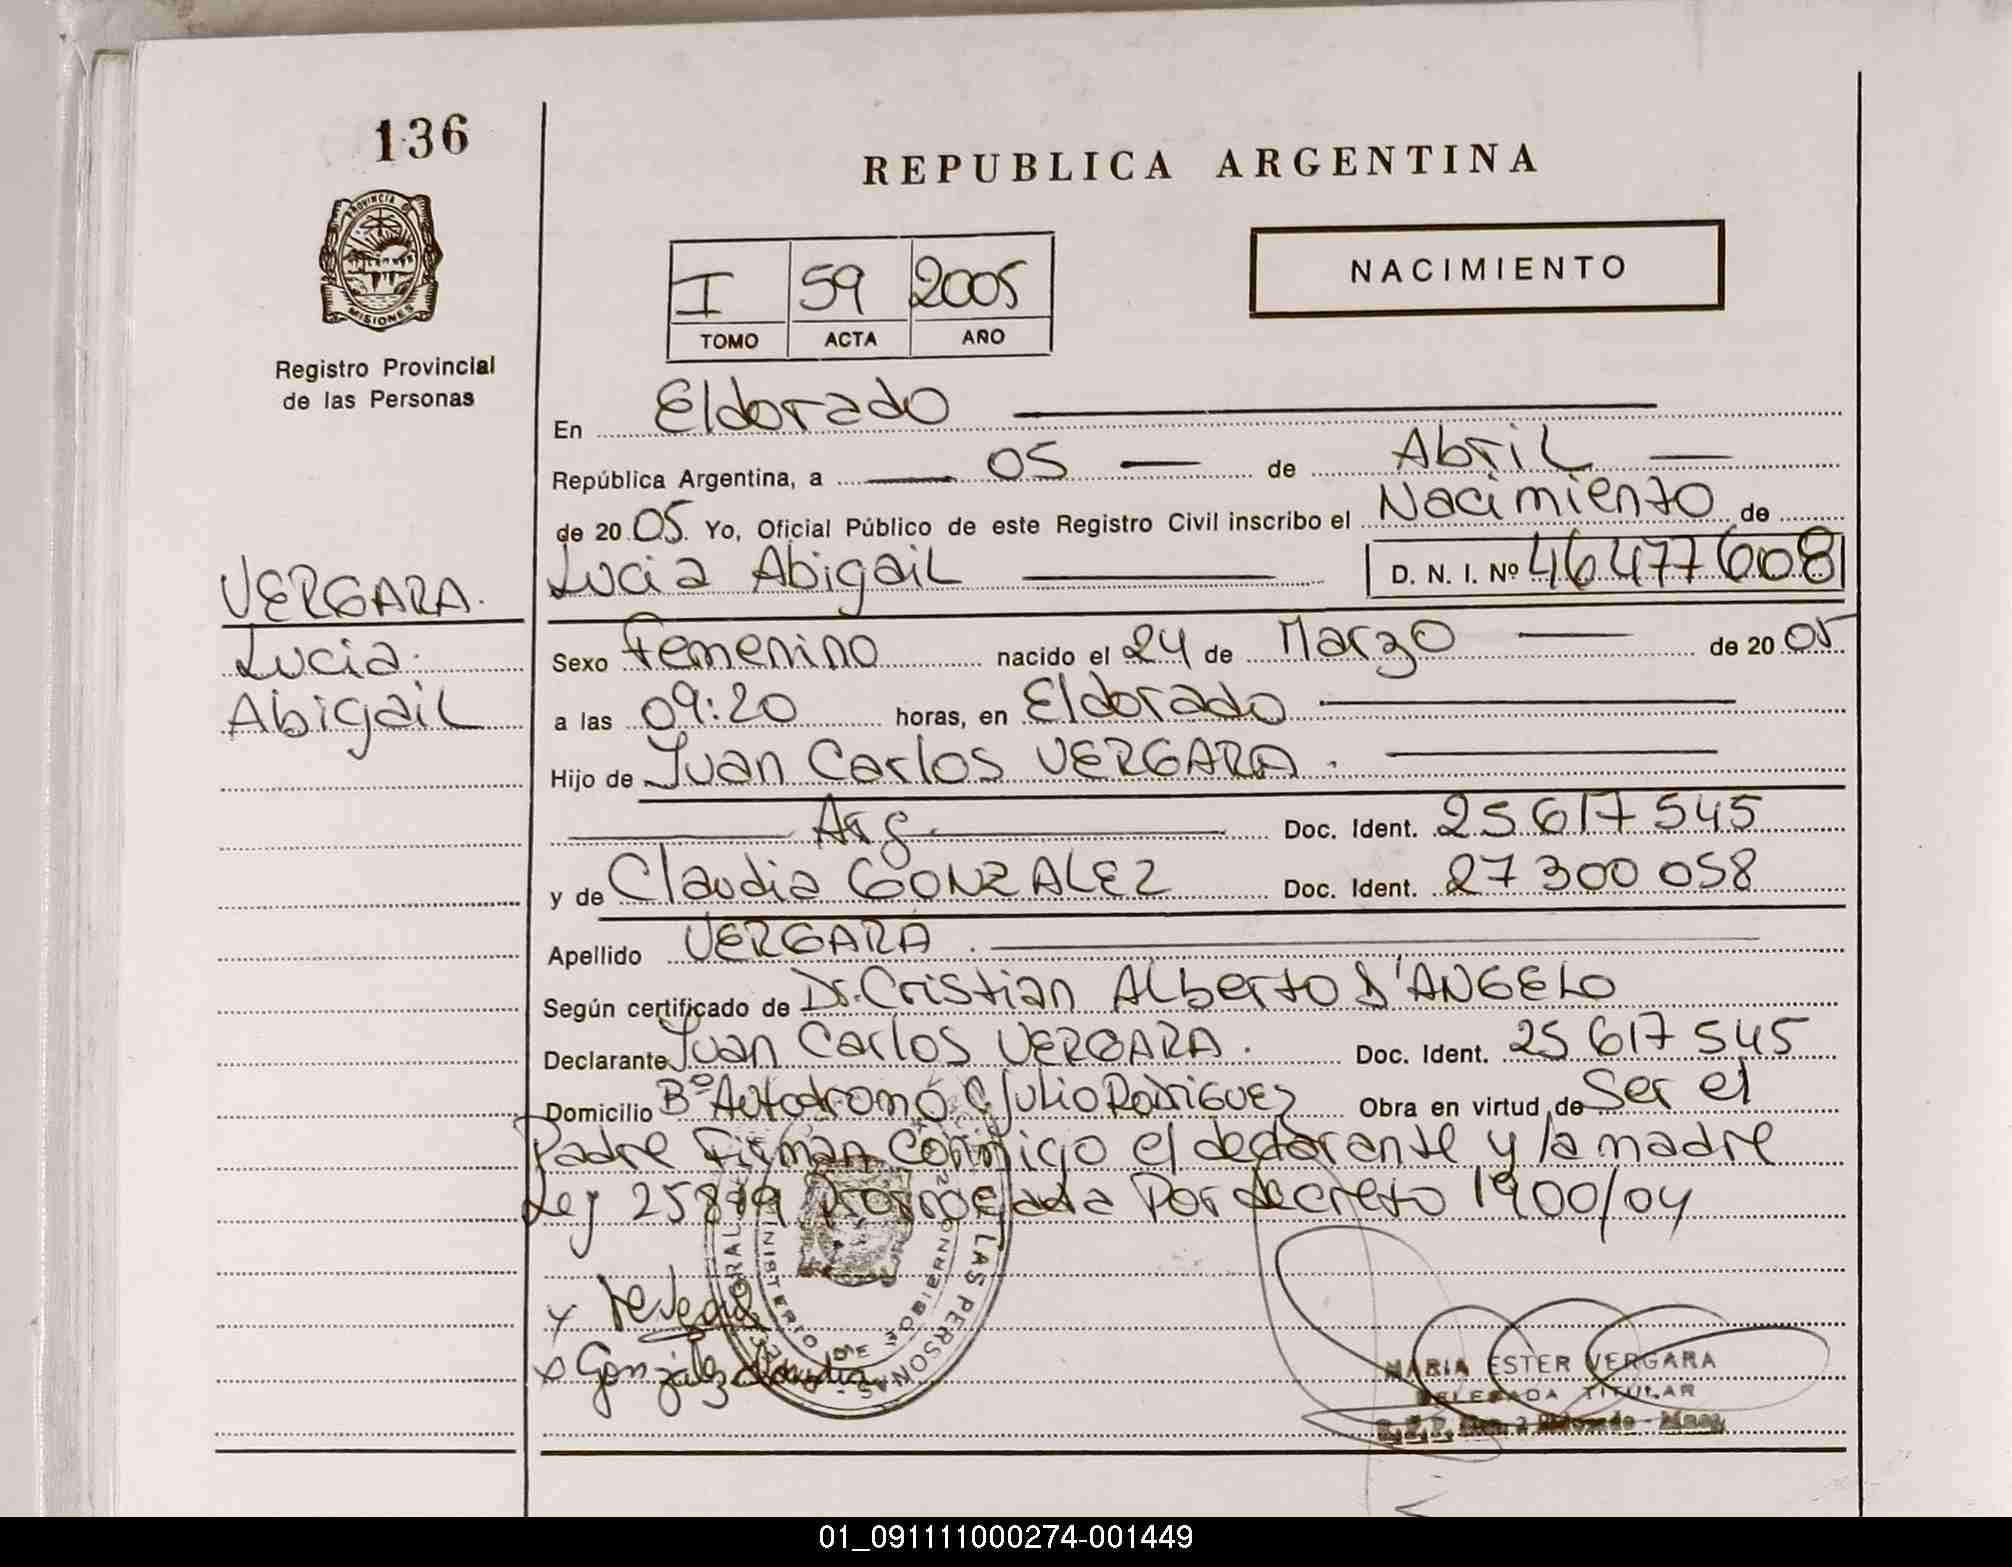 136
PROVINCIA DE
MISIONES
Registro Provincial
de las Personas
VERGARA.
Lucia
Abigail
REPUBLICA ARGENTINA
NACIMIENTO
I 59 2005
TOMO ACTA AÑO
En Eldorado
República Argentina, a 05 de Abril
de 2005. Yo, Oficial Público de este Registro Civil inscribo el Nacimiento de
Lucia Abigail D. N. I. Nº 46477608
Sexo Femenino nacido el 24 de Marzo de 2005
a las 09:20 horas, en Eldorado
Hijo de Juan Carlos VERGARA.
Arg. Doc. Ident. 25 617 545
y de Claudia GONZALEZ Doc. Ident. 27 300 058
Apellido VERGARA.
Según certificado de Dr. Cristian Alberto D'ANGELO
Declarante Juan Carlos VERGARA. Doc. Ident. 25 617 545
Domicilio Bº Autodromo C/Julio Rodriguez Obra en virtud de Ser el
Padre Firman Conmigo el declarante y la madre
Ley Por decreto 1900/04
LAS PERSONAS
MINISTERIO DE
x
x González Claudia
MARIA ESTER VERGARA
DELEGADA TITULAR
01_091111000274-001449